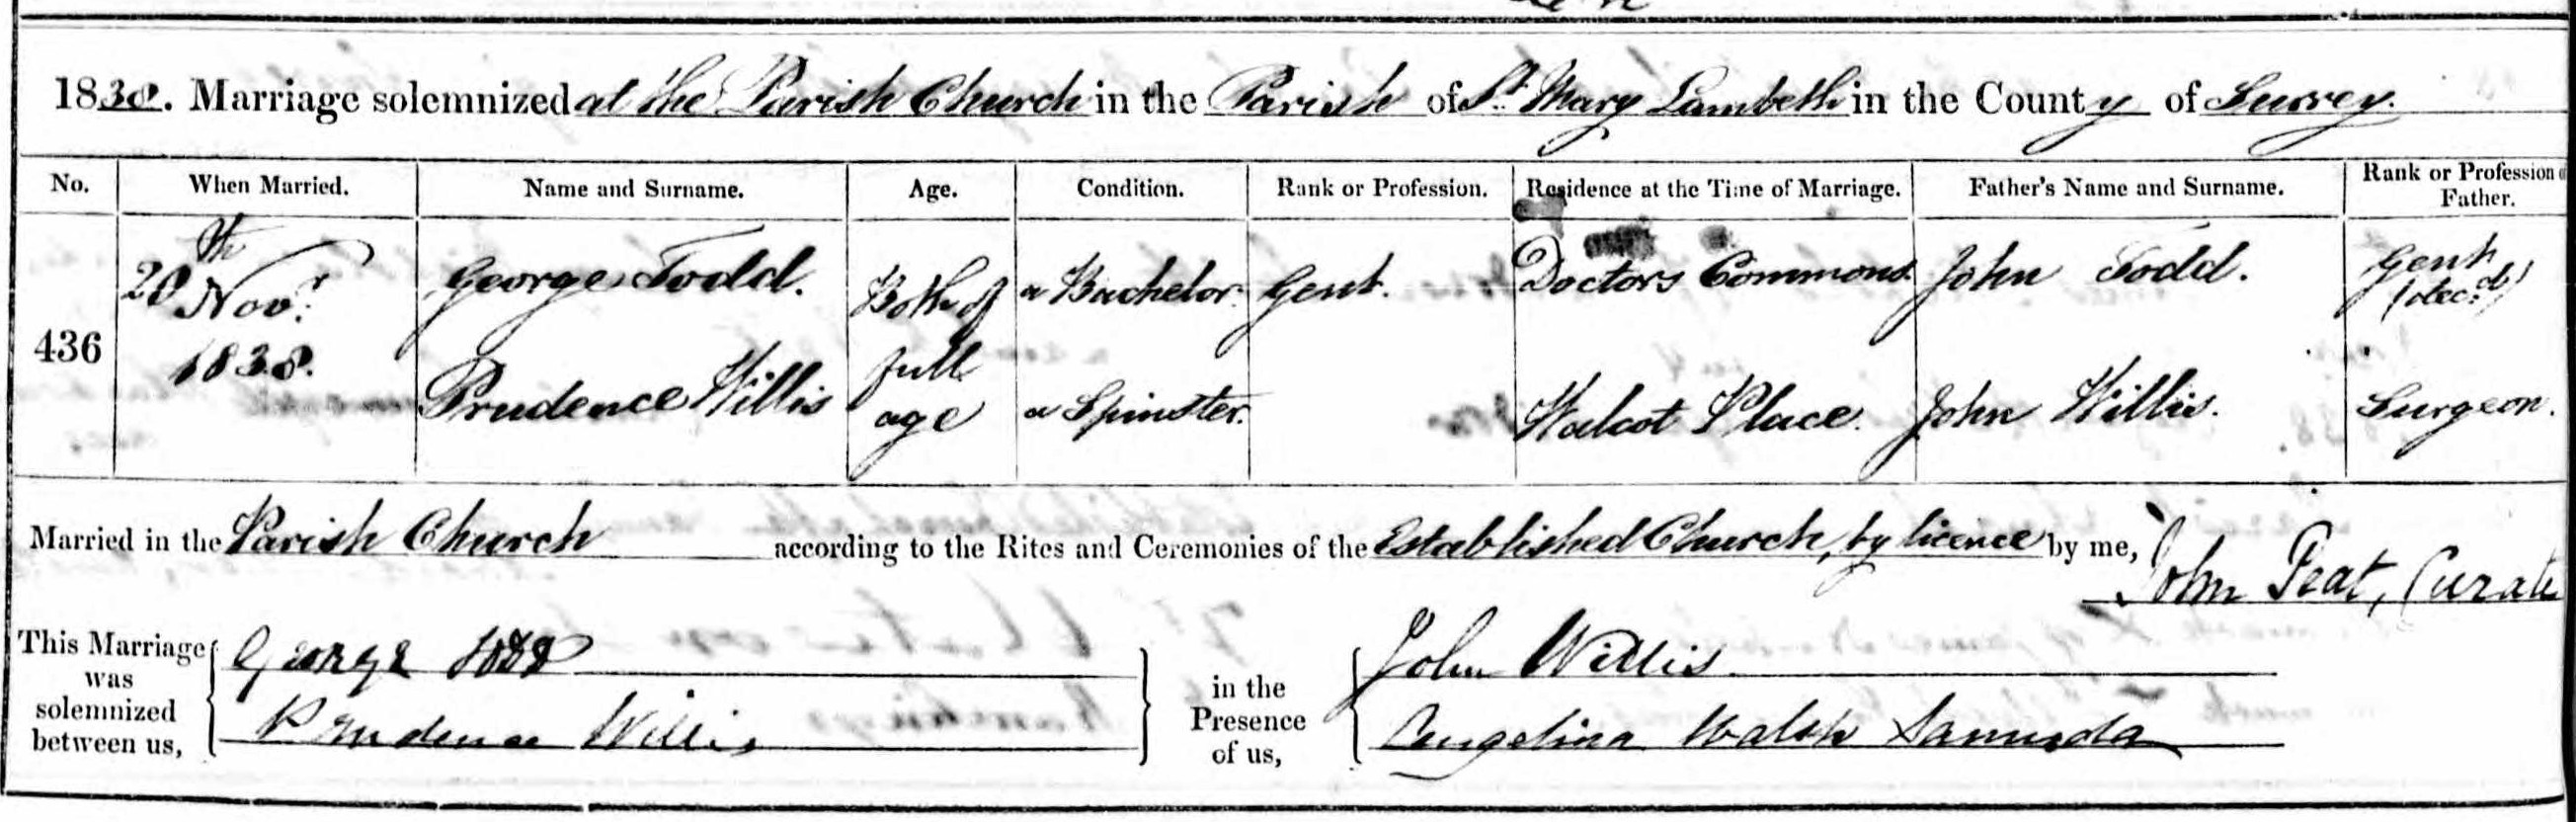 1838. Marriage solemnized at the Parish Church in the Parish of St. Mary Lambeth in the County of Surrey.
No. When Married. Name and Surname. Age. Condition. Rank or Profession. Residence at the Time of Marriage. Father's Name and Surname. Rank or Profession of Father.
436 28th Novr. 1838. George Todd. Both of full age a Bachelor. Gent. Doctors Commons. John Todd. Gent (decd)
Prudence Willis a Spinster. Walcot Place. John Willis. Surgeon.
Married in the Parish Church according to the Rites and Ceremonies of the Established Church, by licence by me, John Peat, Curate
This Marriage was solemnized between us, George Todd in the Presence of us, John Willis
Prudence Willis Angelina Walsh Samuda